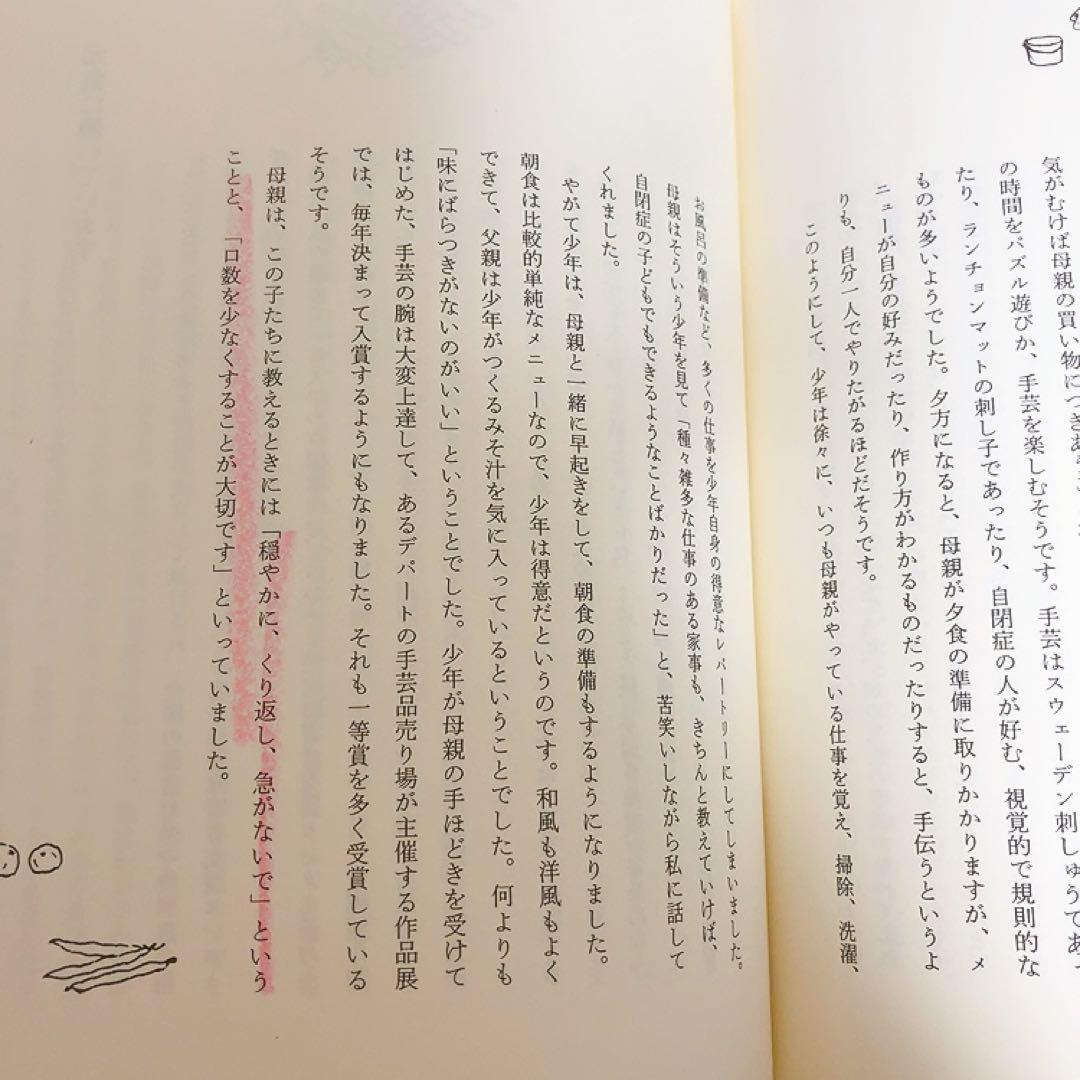 気がむけば母親の買い物につきあ
の時間をパズル遊びか、手芸を楽しむそうです。手芸はスウェーデン刺しゅうであっ
たり、ランチョンマットの刺し子であったり、自閉症の人が好む、視覚的で規則的な
ものが多いようでした。夕方になると、母親が夕食の準備に取りかかりますが、メ
ニューが自分の好みだったり、作り方がわかるものだったりすると、手伝うというよ
りも、自分一人でやりたがるほどだそうです。
このようにして、少年は徐々に、いつも母親がやっている仕事を覚え、掃除、洗濯、
お風呂の準備など、多くの仕事を少年自身の得意なレパートリーにしてしまいました。
母親はそういう少年を見て「種々雑多な仕事のある家事も、きちんと教えていけば、
自閉症の子どもでもできるようなことばかりだった」と、苦笑いしながら私に話して
くれました。
やがて少年は、母親と一緒に早起きをして、朝食の準備もするようになりました。
朝食は比較的単純なメニューなので、少年は得意だというのです。和風も洋風もよく
できて、父親は少年がつくるみそ汁を気に入っているということでした。何よりも
「味にばらつきがないのがいい」ということでした。少年が母親の手ほどきを受けて
はじめた、手芸の腕は大変上達して、あるデパートの手芸品売り場が主催する作品展
では、毎年決まって入賞するようにもなりました。それも一等賞を多く受賞している
そうです。
母親は、この子たちに教えるときには「穏やかに、くり返し、急がないで」という
ことと、「口数を少なくすることが大切です」といっていました。